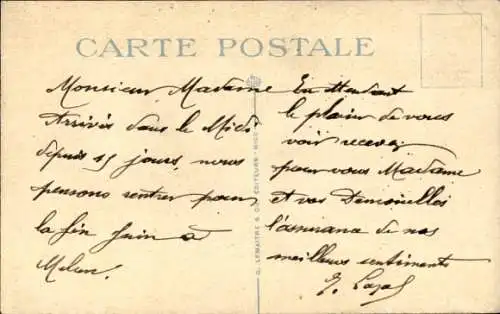 CARTE POSTALE
Monsieur Madame
Arrivés dans le Midi
depuis 15 jours, nous
pensons rentrer pour
la fin Juin à
Melun.
En attendant
le plaisir de vous
voir recevez
pour vous Madame
et vos Demoiselles
l'assurance de nos
meilleurs sentiments
G. LEMAITRE & Cie ÉDITEURS - NICE